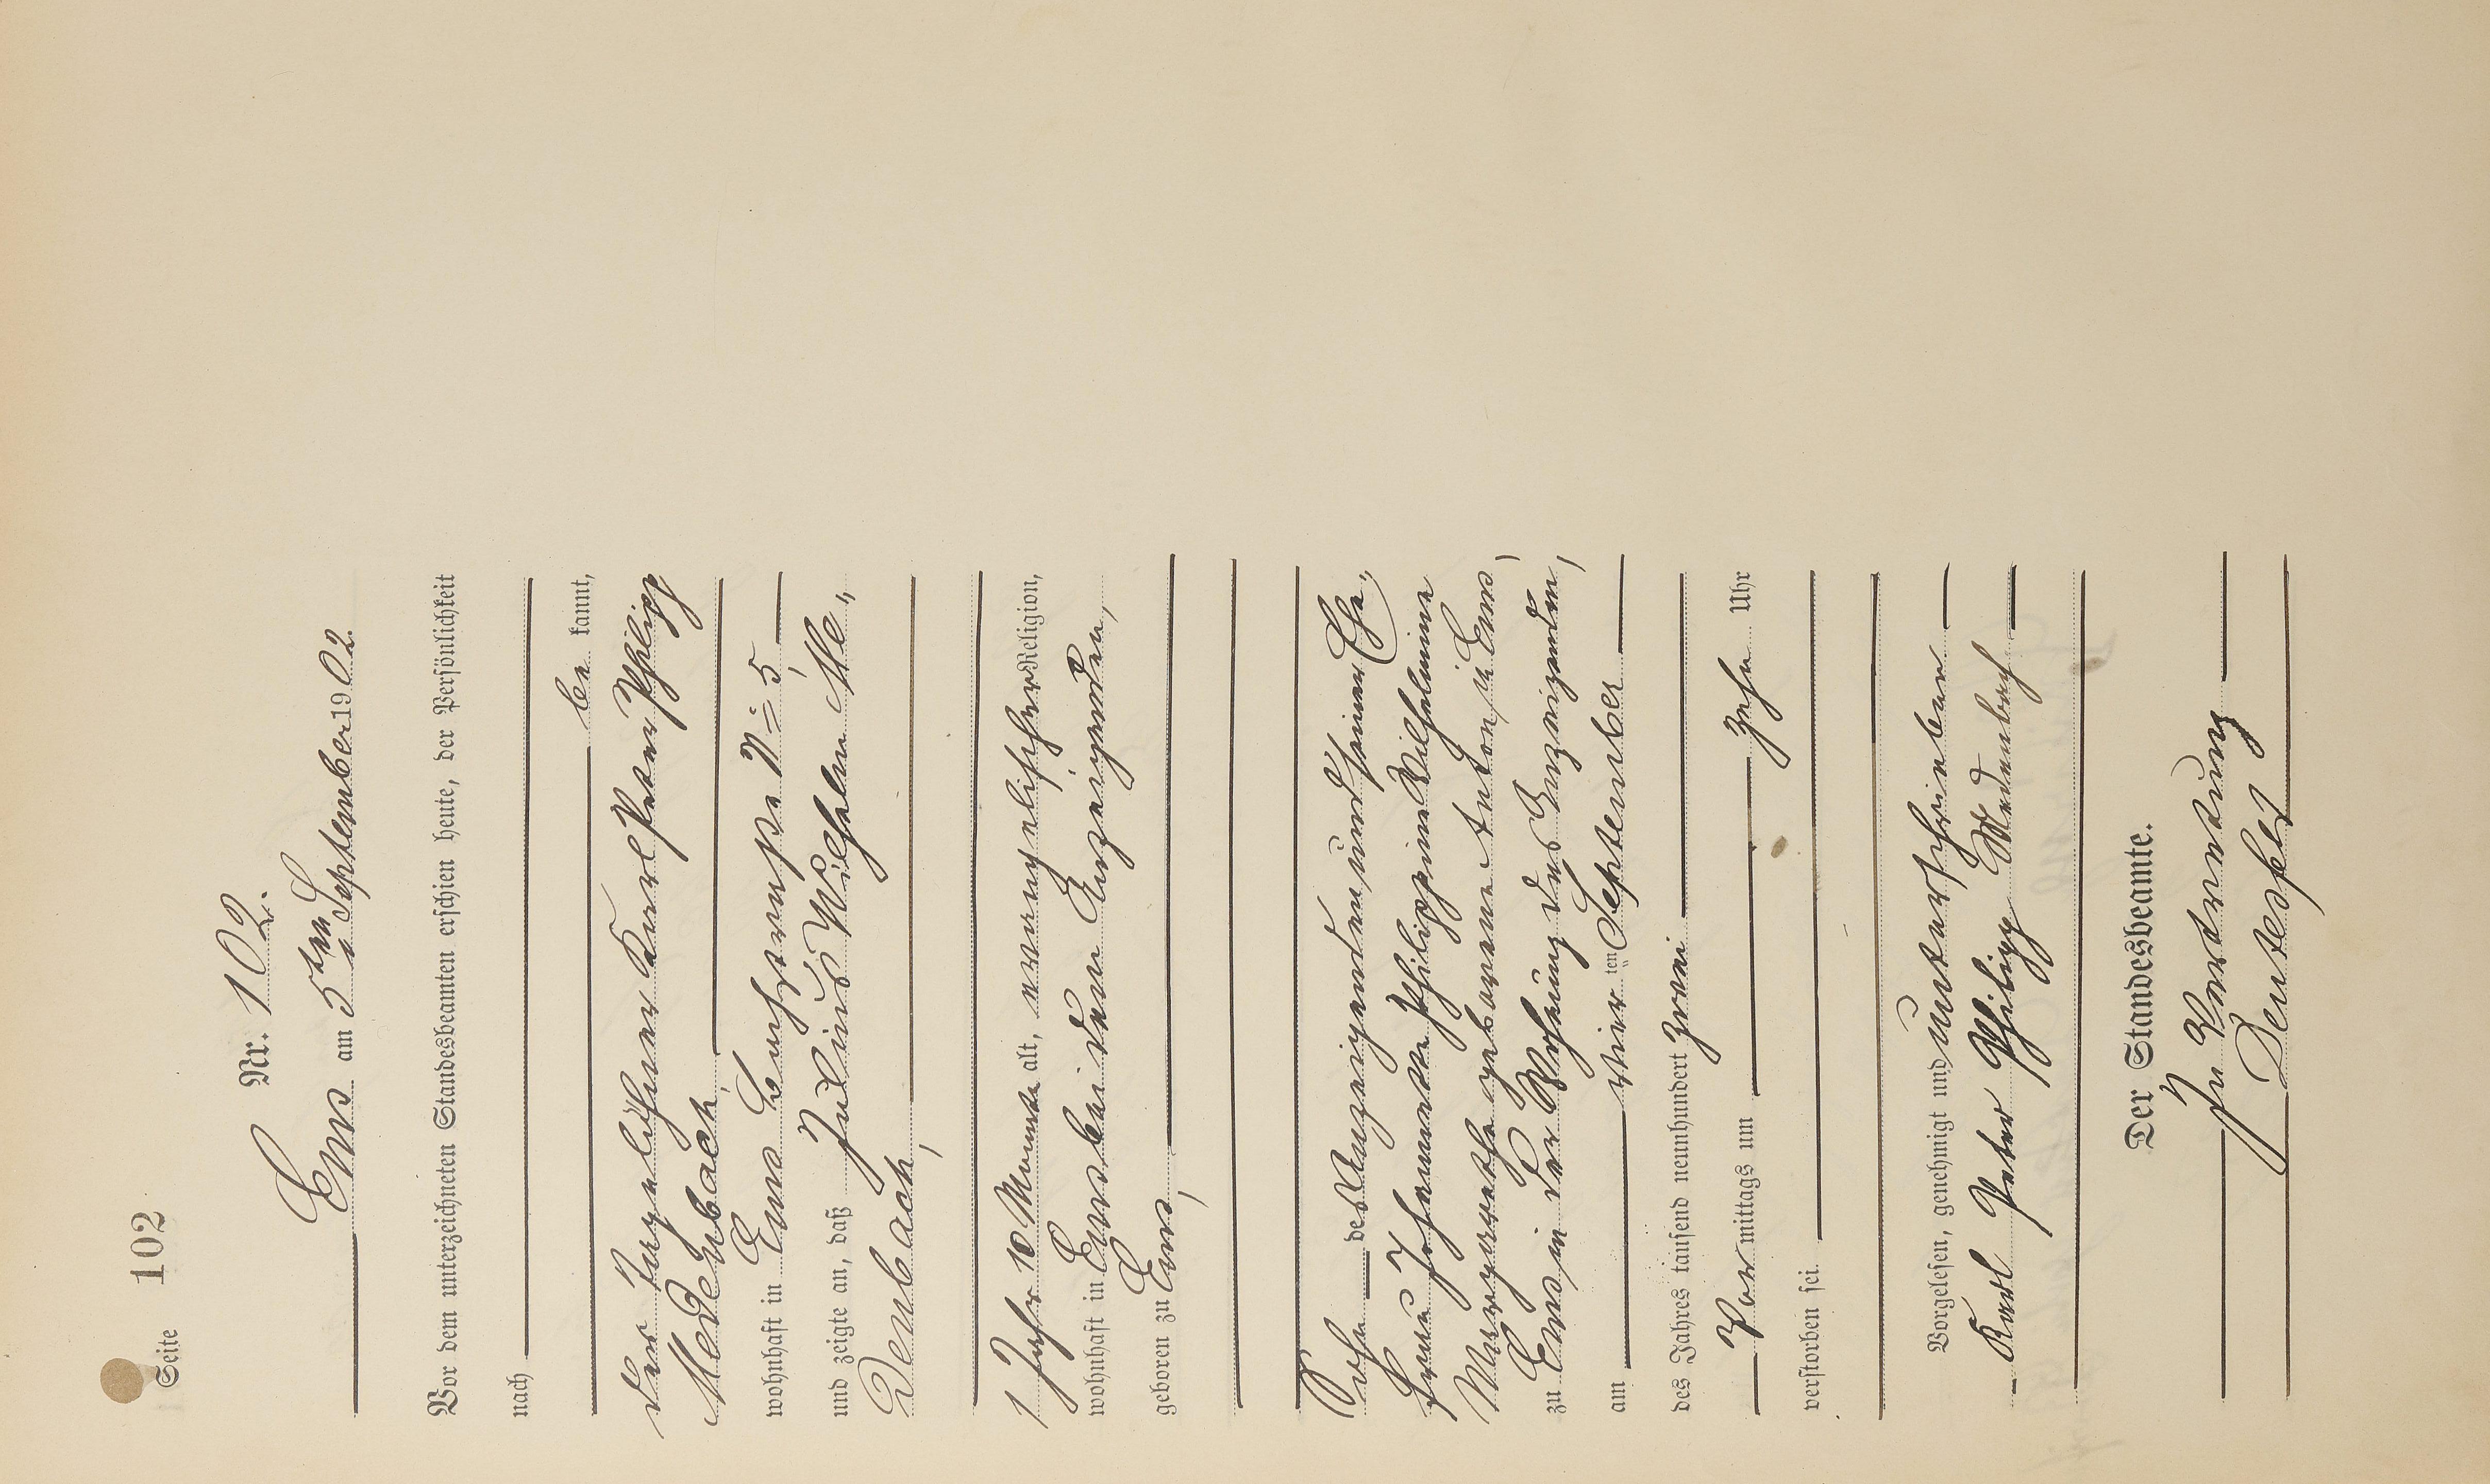 Seite 102
Nr. 102.
Ems am 5ten September 1902.
Vor dem unterzeichneten Standesbeamten erschien heute, der Persönlichkeit
nach
be kannt,
der Karl Peter Philipp
Medenbach,
wohnhaft in Ems No 5,
und zeigte an, daß Julius Wilhelm Me-
denbach,
1 Jahr 10 Monate alt, evangelischer Religion,
wohnhaft in Ems bei dem Anzeigenden,
geboren zu Ems,
Sohn des Anzeigenden und seiner Ehe-
frau Johannette Philippine Wilhelmine
Margarethe geborene zu Ems,
zu Ems in der Wohnung des Anzeigenden,
am vier ten September
des Jahres tausend neunhundert zwei
Vor mittags um zehn Uhr
verstorben sei.
Vorgelesen, genehmigt und unterschrieben
Karl Peter Philipp Medenbach
Der Standesbeamte.
In Vertretung